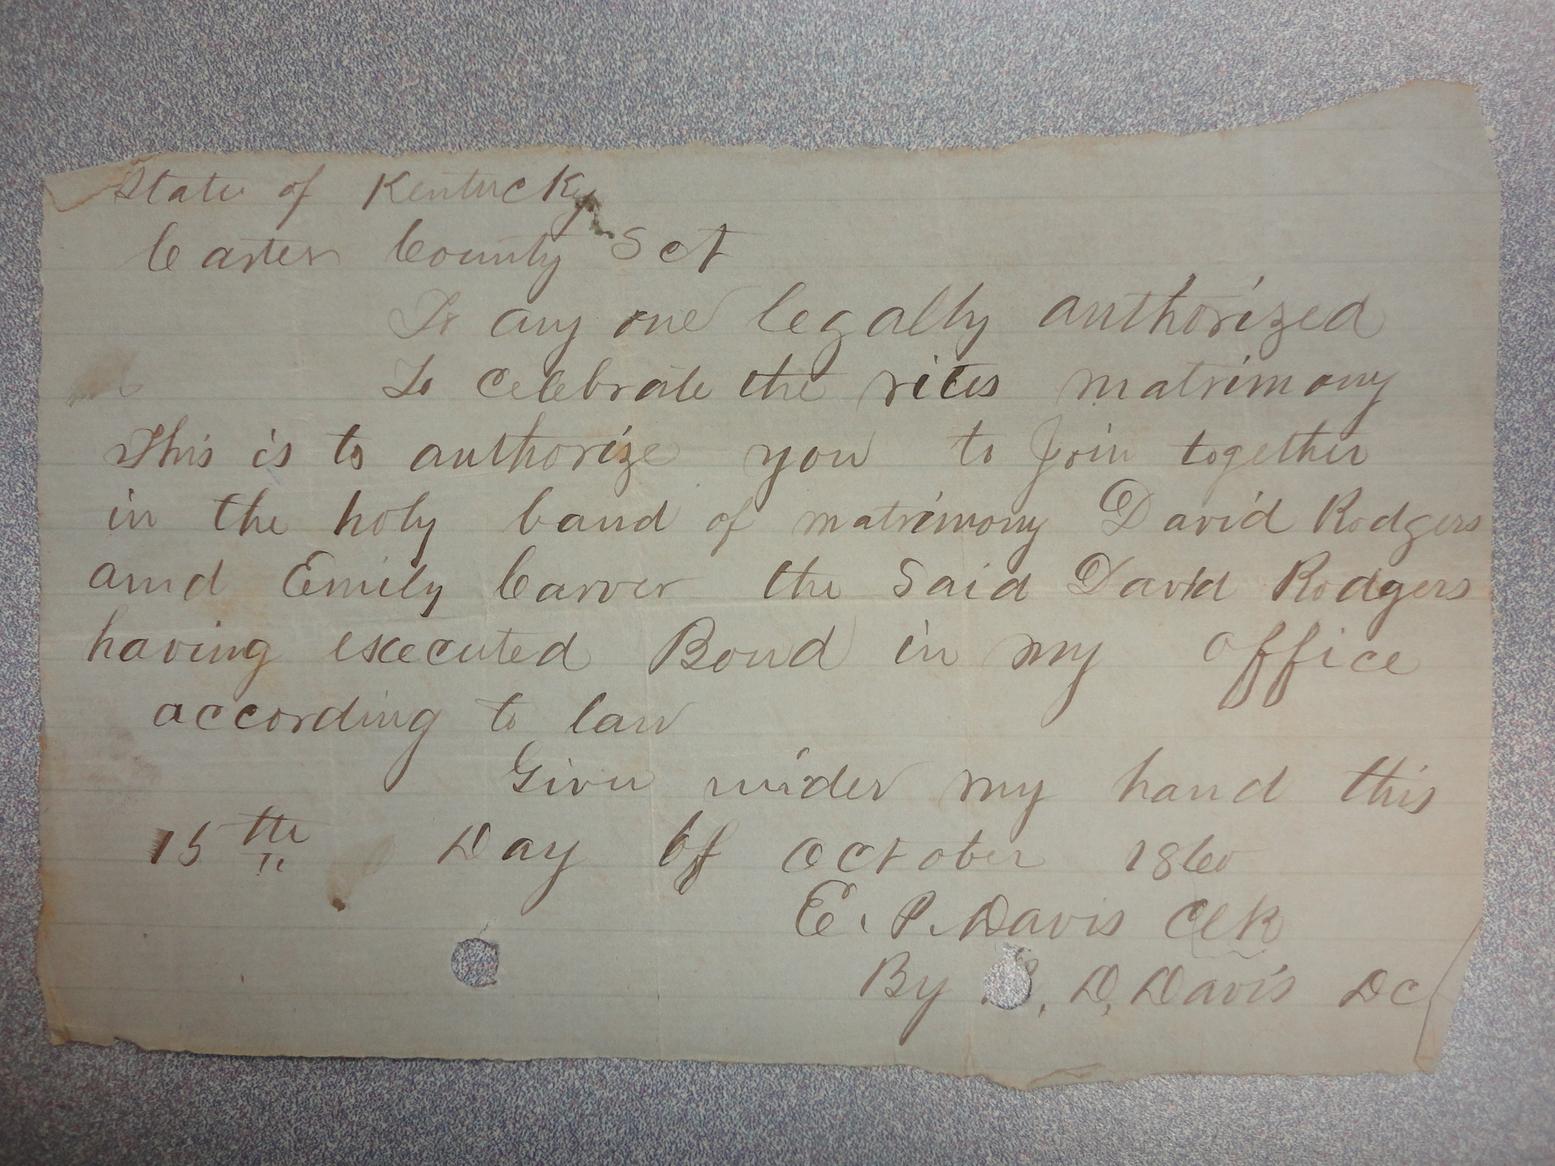 State of Kentucky
Carter County Sct
To any one legally authorized
To celebrate the rites matrimony
This is to authorize you to Join together
in the holy band of matrimony David Rodgers
and Emily Carver the Said David Rodgers
having executed Bond in my office
according to law
Given under my hand this
15th Day of October 1860
E. P. Davis Clk
By D, Davis Dc